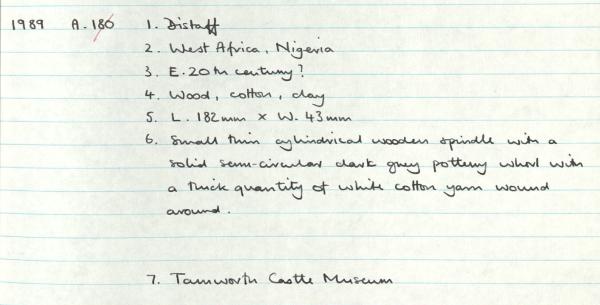 1989 A.180 1. Distaff
2. West Africa, Nigeria
3. E. 20th century?
4. Wood, cotton, clay
5. L. 182mm x W. 43mm
6. Small thin cylindrical wooden spindle with a
solid semi-circular dark grey pottery whorl with
a thick quantity of white cotton yarn wound
around.
7. Tamworth Castle Museum